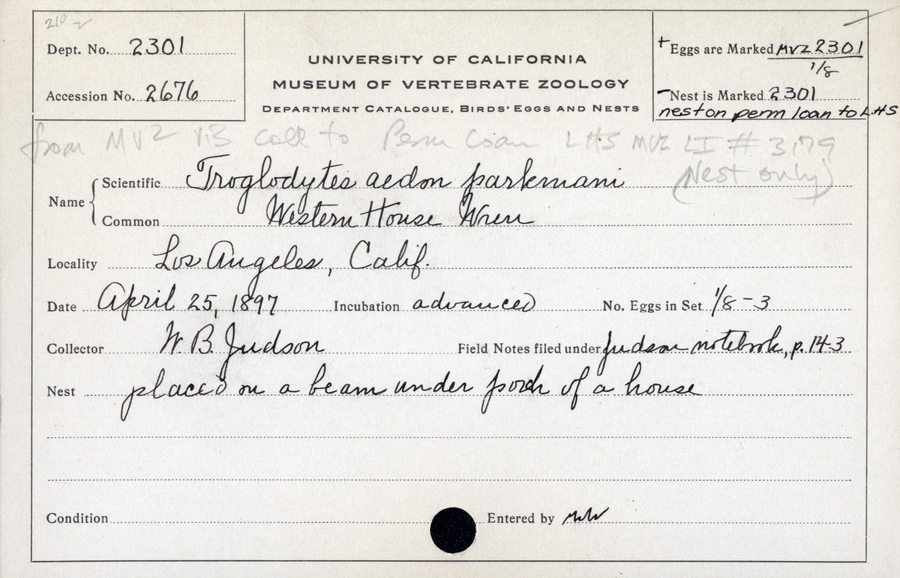 210
Dept. No. 2301
Accession No. 2676
UNIVERSITY OF CALIFORNIA
MUSEUM OF VERTEBRATE ZOOLOGY
DEPARTMENT CATALOGUE, BIRDS' EGGS AND NESTS
+ Eggs are Marked MVZ 2301
1/8
- Nest is Marked 2301
nest on perm loan to LHS
from MVZ VB coll to Perm Loan LHS MVZ LI # 3179
(Nest only)
Name { Scientific Troglodytes aedon parkmani
Common Western House Wren
Locality Los Angeles, Calif.
Date April 25, 1897 Incubation advanced No. Eggs in Set 1/8-3
Collector W. B. Judson Field Notes filed under Judson notebook, p. 14-3
Nest placed on a beam under porch of a house
Condition Entered by